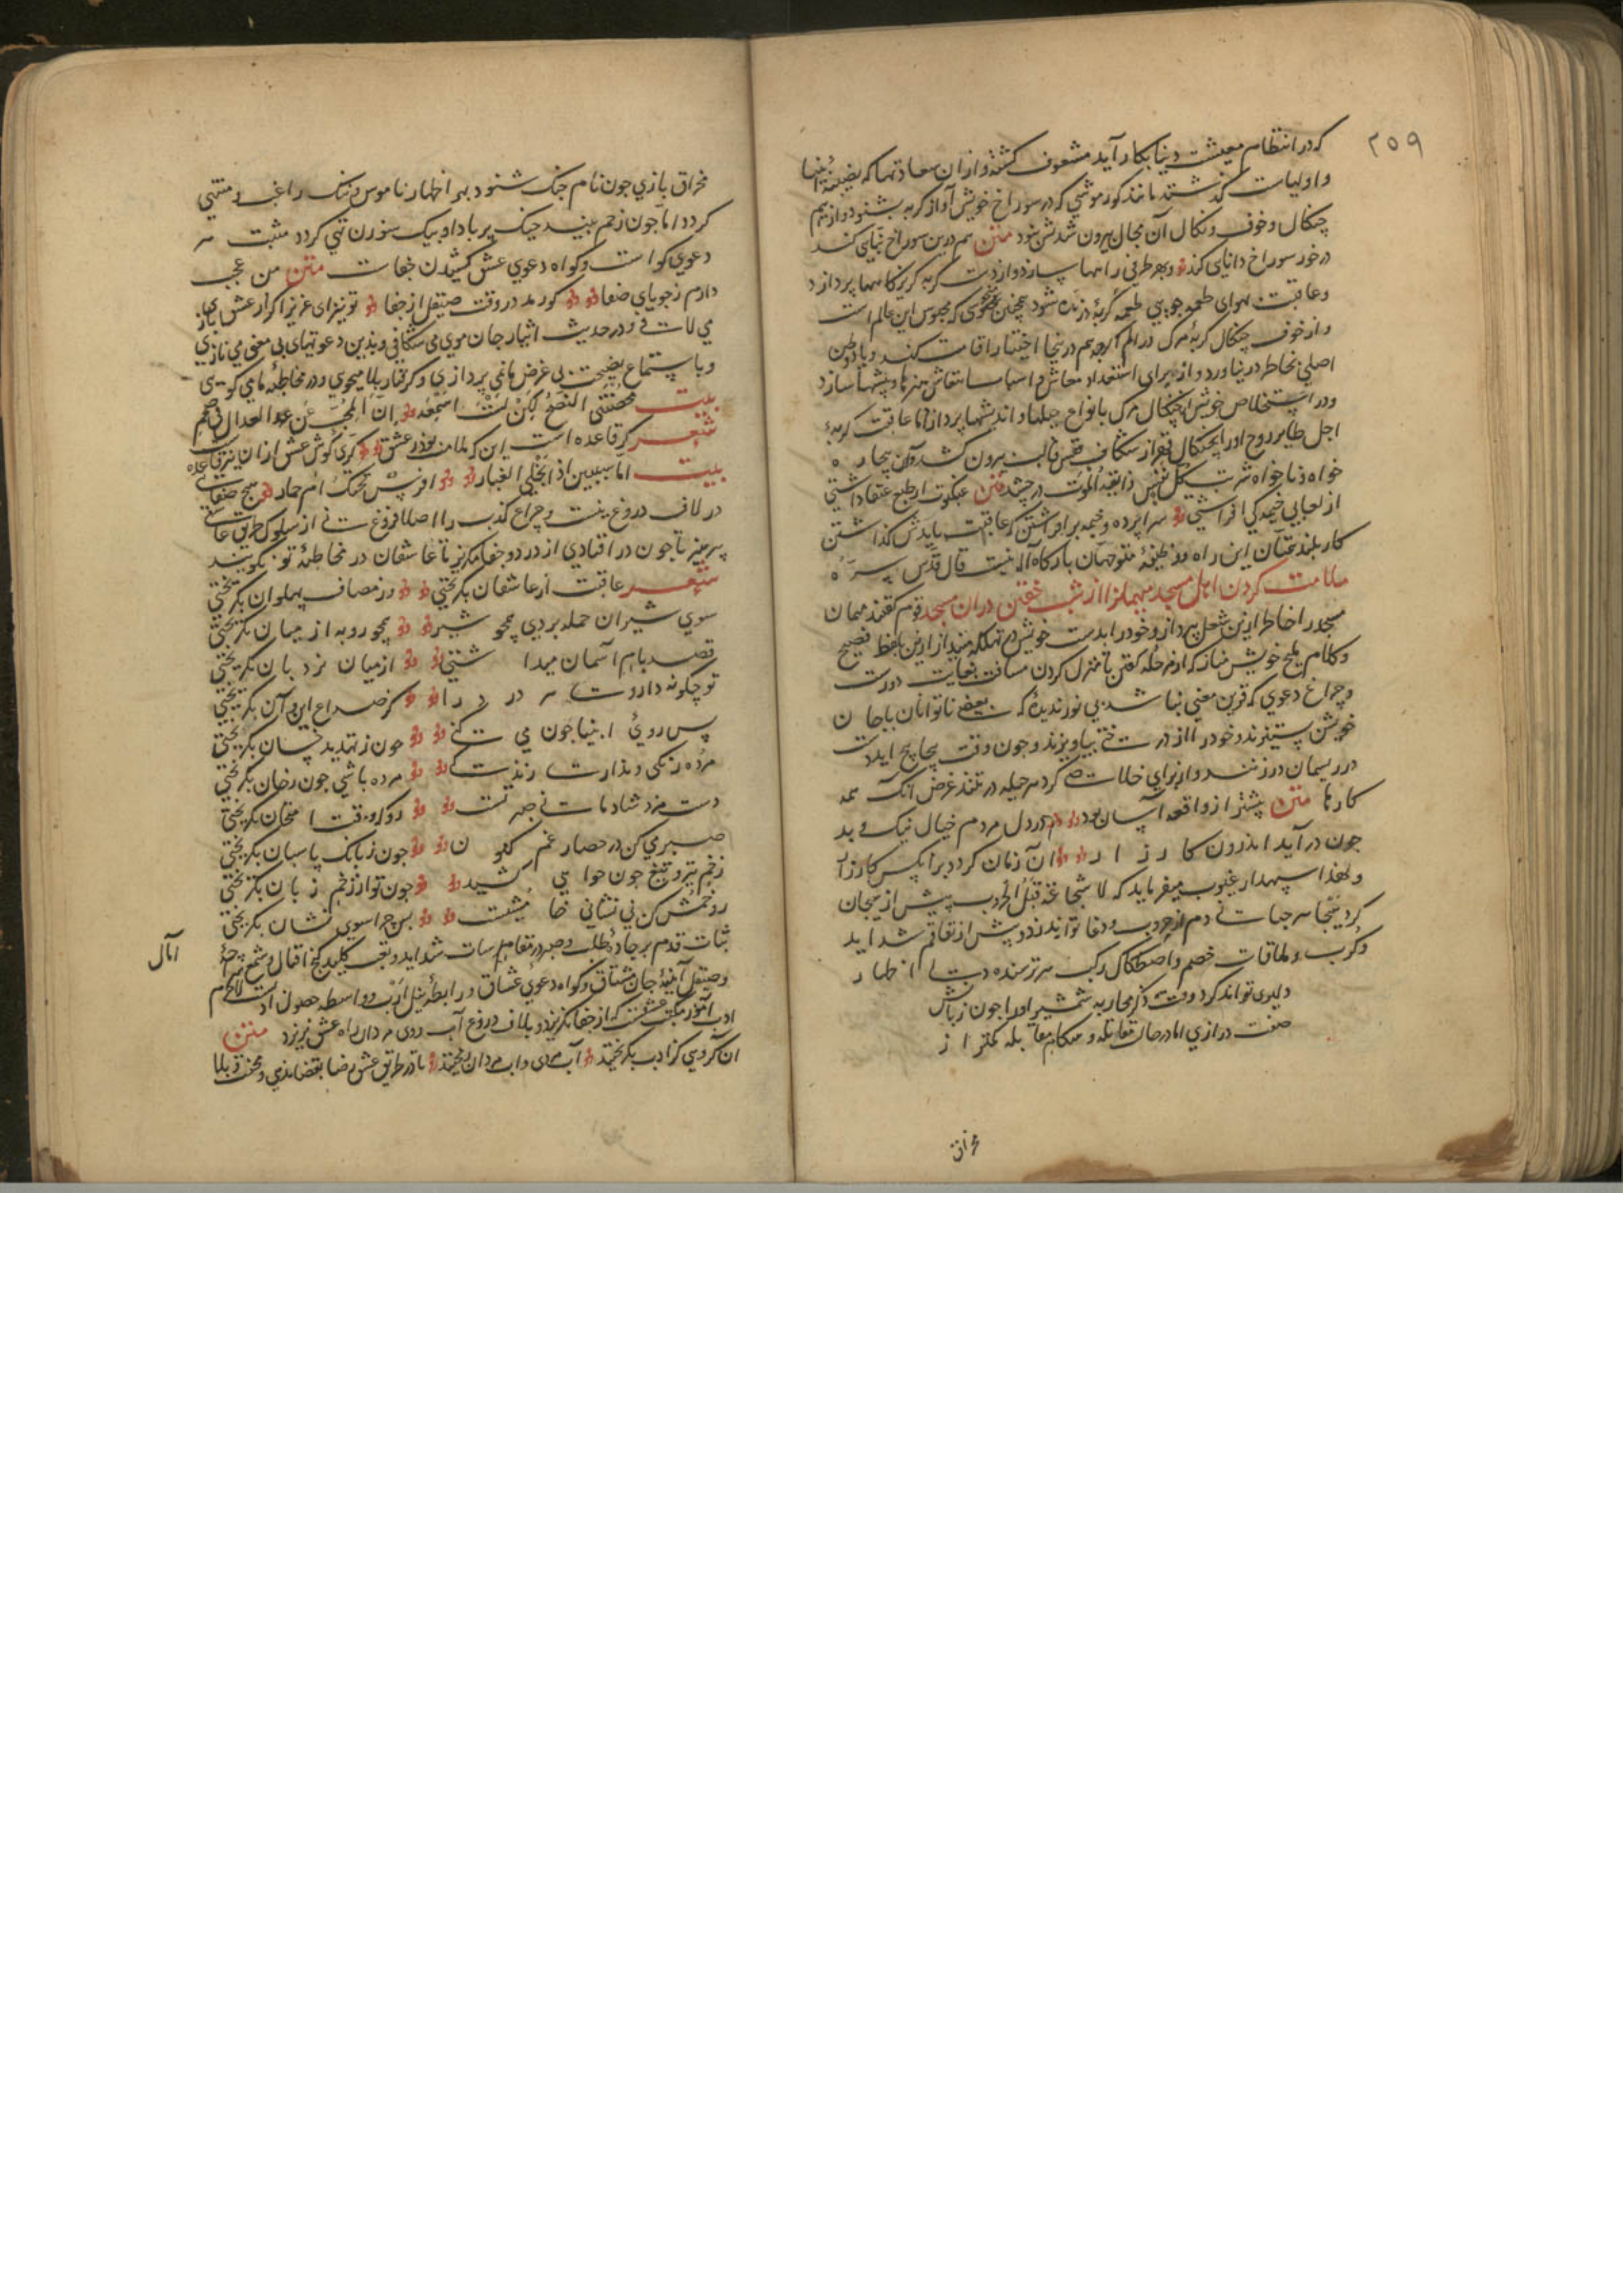 ۲۵۹
که در انتظام معیشت دنیا بکار آید مشعوف کشته و از آن سعادتها که
و اولیاست گذشتند مانند کور موشی که در سوراخ خویش آواز کربه بشنود و از بیم
چنکال و خوف و نکال آن مجال بیرون شدنش نبود متن هم درین سوراخ بنایی کند
در خور سوراخ دانایی کند و بهر طرفی راهها سازد و از دست کربه کریزکاهها پردازد
و عاقبت بهوای طعمه جویی طعمه کربهٔ درنده شود همچنان که محبوس این عالم است
و از خوف چنکال کربهٔ مرک در الم اکرچه هم درینجا اختیار اقامت کند و یاد وطن
اصلی بخاطر در نیاورد و از برای استعداد معاش و اسباب انتعاش هنرها و پیشها سازد
و در استخلاص خویش از چنکال مرک بانواع حیلها و اندیشها پردازد اما عاقبت کربهٔ
اجل طایر روح او را بچنکال قهر از شکاف قفس قالب بیرون کشد و آن بیچاره
خواه و ناخواه شربت کل نفس ذایقة الموت در چشد متن عنکبوت ار طبع عنقا داشتی
از لعابی خیمه کی افراشتی سراپرده و خیمه بر افراشتن که عاقبت بایدش کذاشتن
کار بلند همتان این راه و وظیفهٔ متوجهان بارکاه اله نیست قال قدس سره
ملامت کردن اهل مسجد میهمانرا از شب خفتن در آن مسجد قوم کفتند میهمان
مسجد را خاطر ازین شغل بپرداز و خود را بدست خویش در تهلکه مینداز ازین لفظ فصیح
و کلام ملیح خویش مناز که از مرحله کفتن تا منزل کردن مسافت بغایت دورست
و چراغ دعوی که قرین معنی نباشد بی نور ندیدهٔ که بعضی ناتوانان با جان
خویش ستیزند و خود را از درختی بیاویزند و چون وقت پیچاپیچ آید دست
در ریسمان در زنند و از برای خلاصی کرد هر حیله در تنند غرض آنک همه
کارها متن پیشتر از واقعه آسان بود در دل مردم خیال نیک و بد
چون در آید اندرون کارزار آن زمان کردد بر آنکس کار زار
و لهذا سپهدار غیوب میفرماید که لا شجاعة قبل الحروب پیش از هیجان
کرد هیجا هر جبانی دم از حروب و دغا تواند زد و پیش از تفاقم شداید
و کرب و ملاقات خصم و اصطکاک رکب هر ترسنده دست اظهار
دلیری تواند کرد وقت ذکر محاربه شمشیر او را چون زبانش
صفت درازی اما در حال مقاتله و هنکام مقابله کمتر از
مخراق
مخراق بازی چون نام جنک شنود بهر اظهار ناموس و ننک راغب و مشتهی
کردد اما چون زخم بیند خیک پر باد او بیک سوزن تهی کردد مثبت هر
دعوی کواست و کواه دعوی عشق کشیدن جفاست متن من عجب
دارم ز جویای صفا کو رمد در وقت صیقل از جفا تو نیز ای عزیز اکر از عشق بازی
می لافی و در حدیث ایثار جان موی می شکافی و بدین دعوتهای بی معنی می نازی
و با استماع نصیحت بی غرض ما نمی پردازی و کرفتار بلا میجوی و در مخاطبهٔ ما می کویی
بیت محضتنی النصح لکن لست اسمعه ان المحب عن العذال فی صمم
شعر کر قاعده است این که ملامت بود ز عشق کری کوش عشق از آن نیز قاعده
بیت اما سیبین اذا انجلی الغبار افرس تحتک ام حمار هیچ صفایی
در لاف دروغ نیست و چراغ کذب را اصلا فروغ نی از سلوک طریق عاشقی
بپرهیز تا چون در افتادی از درد و جفا مکریز تا عاشقان در مخاطبهٔ تو نکویند
شعر عاقبت از عاشقان بکریختی وز مصاف پهلوان بکریختی
سوی شیران حمله بردی همچو شیر همچو روبه از میان بکریختی
قصد بام آسمان میداشتی از میان نردبان بکریختی
تو چکونه داروی هر درد را کز صداع این و آن بکریختی
پس روی انبیا چون می کنی چون ز تهدید خسان بکریختی
مرده رنکی و نداری زندکی مرده باشی چون ز جان بکریختی
دست مزد شادمانی صبر تست رو که وقت امتحان بکریختی
صبر می کن در حصار غم کنون چون ز بانک پاسبان بکریختی
زخم تیر و تیغ چون خواهی کشید چون تو از زخم زبان بکریختی
رو خمش کن بی نشانی خامشیست پس چرا سوی نشان بکریختی
ثبات قدم بر جادهٔ طلب و صبر در مقام مقاسات شداید و تعب کلید کنج اقبال و شمع
آمال
و صیقل آینهٔ جان مشتاق و کواه دعوی عشاق و رابطهٔ نیل ارب و واسطه حصول ادب است لاجرم
ادب آموز مکتب عشقست که از جفا نکریزد و بلاف دروغ آب روی مردان راه عشق نریزد متن
آن کروهی کز ادب بکریختند آب مردی و آب مردان ریختند تا در طریق عشق رضا بقضا ندهی و محنت و بلا